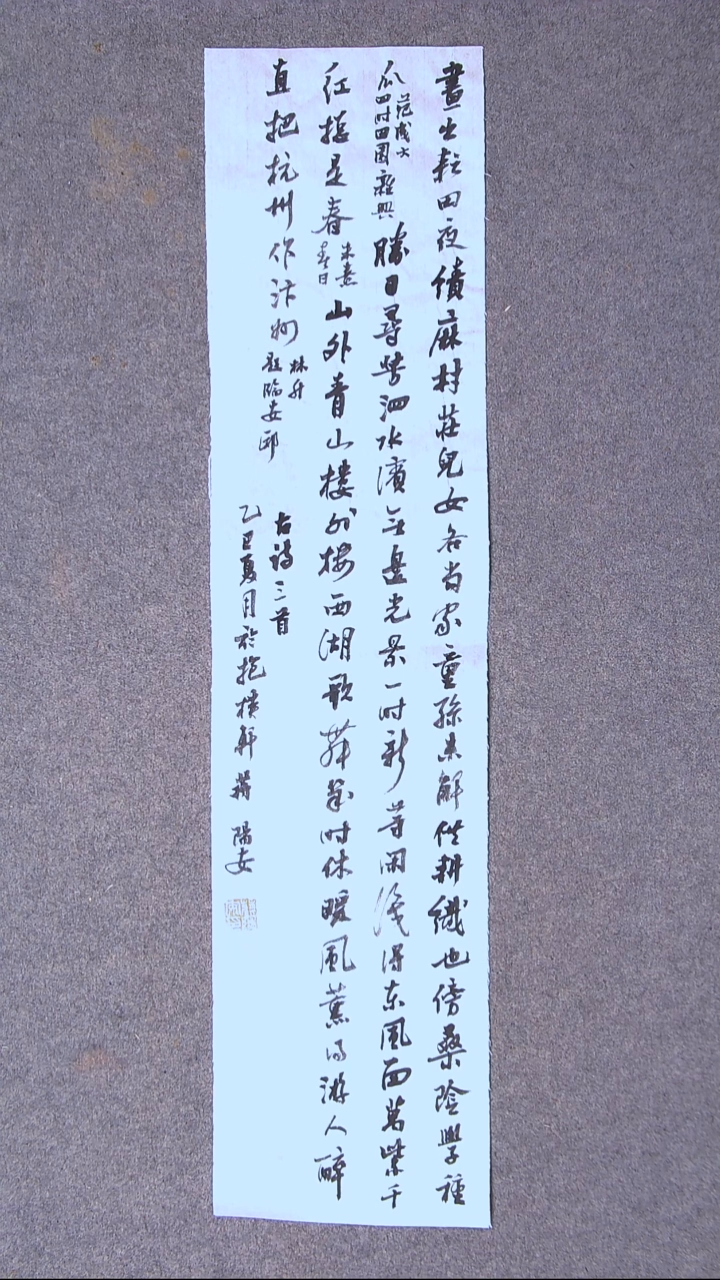 晝出耘田夜績麻村莊兒女各当家童孫未解供耕織也傍桑陰學種
瓜
范成大
四时田園雜興
勝日尋芳泗水濱无邊光景一时新等閑識得东風面萬紫千
紅總是春
朱熹
春日
山外青山樓外樓西湖歌舞幾时休暖風薰得游人醉
直把杭州作汴州
林升
題臨安邸
古詩三首
乙巳夏月於抱樸軒蔣陽安